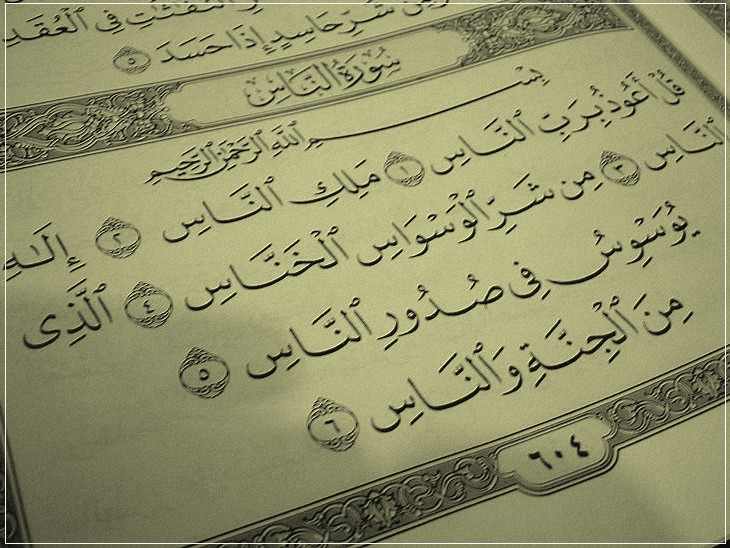 ٱلنَّفَّٰثَٰتِ فِى ٱلْعُقَدِ
شَرِّ حَاسِدٍ إِذَا حَسَدَ ٥
سُورَةُ النَّاسِ
بِسْمِ ٱللَّهِ ٱلرَّحْمَٰنِ ٱلرَّحِيمِ
قُلْ أَعُوذُ بِرَبِّ ٱلنَّاسِ ١ مَلِكِ ٱلنَّاسِ ٢ إِلَٰهِ
ٱلنَّاسِ ٣ مِن شَرِّ ٱلْوَسْوَاسِ ٱلْخَنَّاسِ ٤ ٱلَّذِى
يُوَسْوِسُ فِى صُدُورِ ٱلنَّاسِ ٥
مِنَ ٱلْجِنَّةِ وَٱلنَّاسِ ٦
٦٠٤